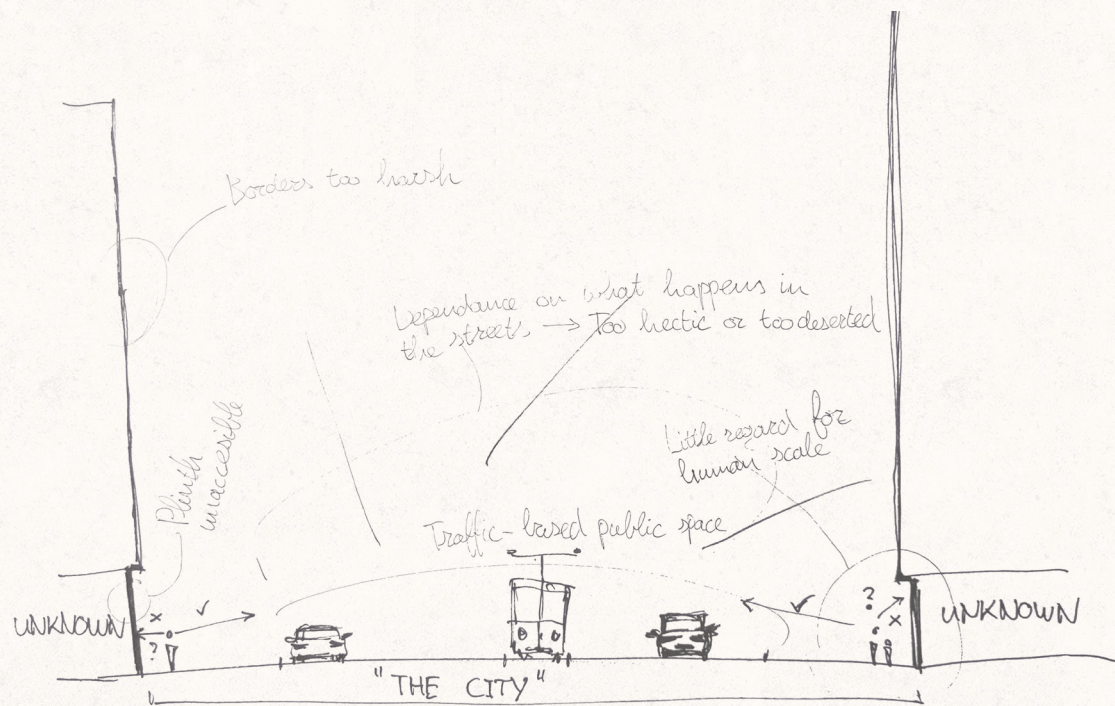 Borders too harsh
Dependance on what happens in
the streets → Too hectic or too deserted
Little regard for
human scale
Plinth
unaccessible
Traffic-based public space
UNKNOWN
x
?
✓
✓
?
x
UNKNOWN
"THE CITY"